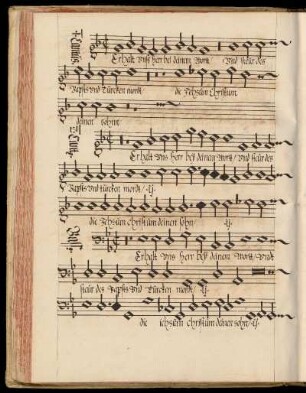 Erhalt unß her bei deinem Wort / Und steür des
Papsts und Türcken mordt / die Jehsum Christum
deinen sohn
Erhalt uns herr bei deinem Wort / und steür des
Papsts und türcken mordt / ij
die Jehsum Christum deinen sohn / ij
Erhalt uns herr bei deinem Wort / undt
steür des Papsts und Türcken mordt / ij
die Jehsum Christum deinen sohn / ij